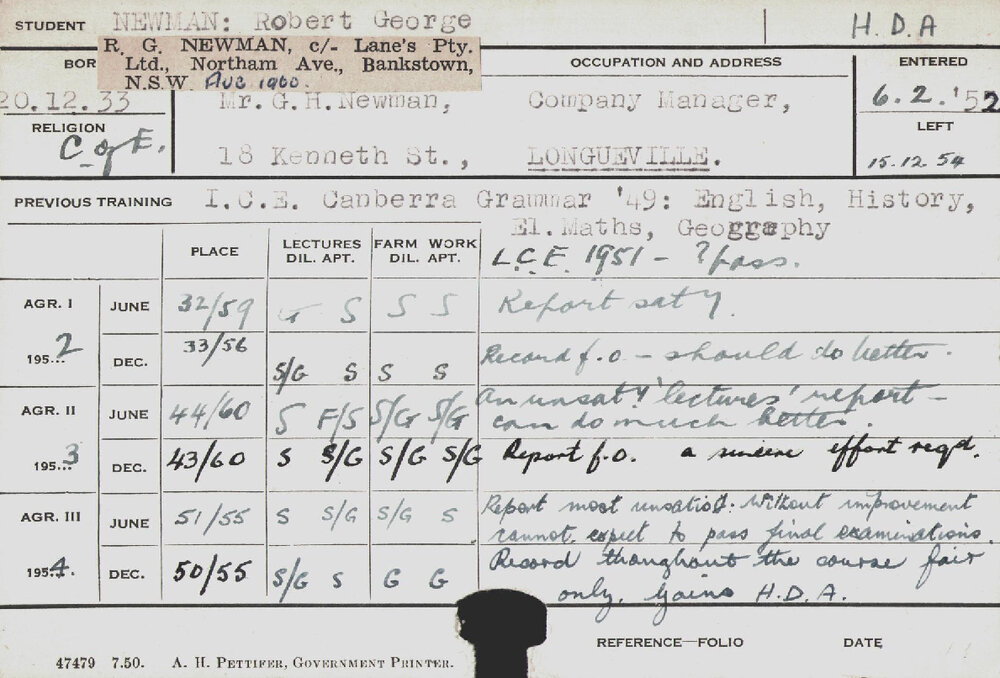 STUDENT NEWMAN: Robert George H.D.A
R. G. NEWMAN, c/- Lane's Pty.
Ltd., Northam Ave., Bankstown,
N.S.W. Aug 1960.
BOR OCCUPATION AND ADDRESS ENTERED
20.12.33 Mr. G. H. Newman, Company Manager, 6.2.'52
RELIGION LEFT
C of E. 18 Kenneth St., LONGUEVILLE. 15.12.54
PREVIOUS TRAINING I.C.E. Canberra Grammar '49: English, History,
El. Maths, Geography
PLACE LECTURES FARM WORK
DIL. APT. DIL. APT. L.C.E. 1951 - ? pass.
AGR. I JUNE 32/59 G S S S Report saty.
1952 DEC. 33/56 S/G S S S Record f.o - should do better.
AGR. II JUNE 44/60 S F/S S/G S/G An unsaty 'lectures' report -
can do much better.
1953 DEC. 43/60 S S/G S/G S/G Report f.o. a sincere effort reqd.
AGR. III JUNE 51/55 S S/G S/G S Report most unsatisf. Without improvement
cannot expect to pass final examinations.
1954. DEC. 50/55 S/G S G G Record throughout the course fair
only. Gains H.D.A.
REFERENCE—FOLIO DATE
47479 7.50. A. H. PETTIFER, GOVERNMENT PRINTER.